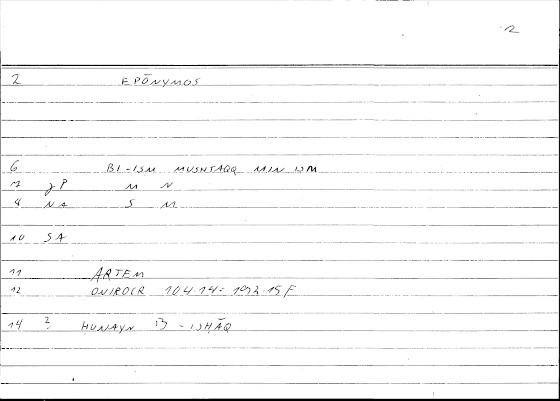 2
2 EPŌNYMOS
6 BI-ISM MUSHTAQQ MIN ISM
7 gP M N
8 NA S M
10 SA
11 ARTEM
12 ONIROCR 104.14 = 1972.15 F
14 ? HUNAYN B - ISHĀQ